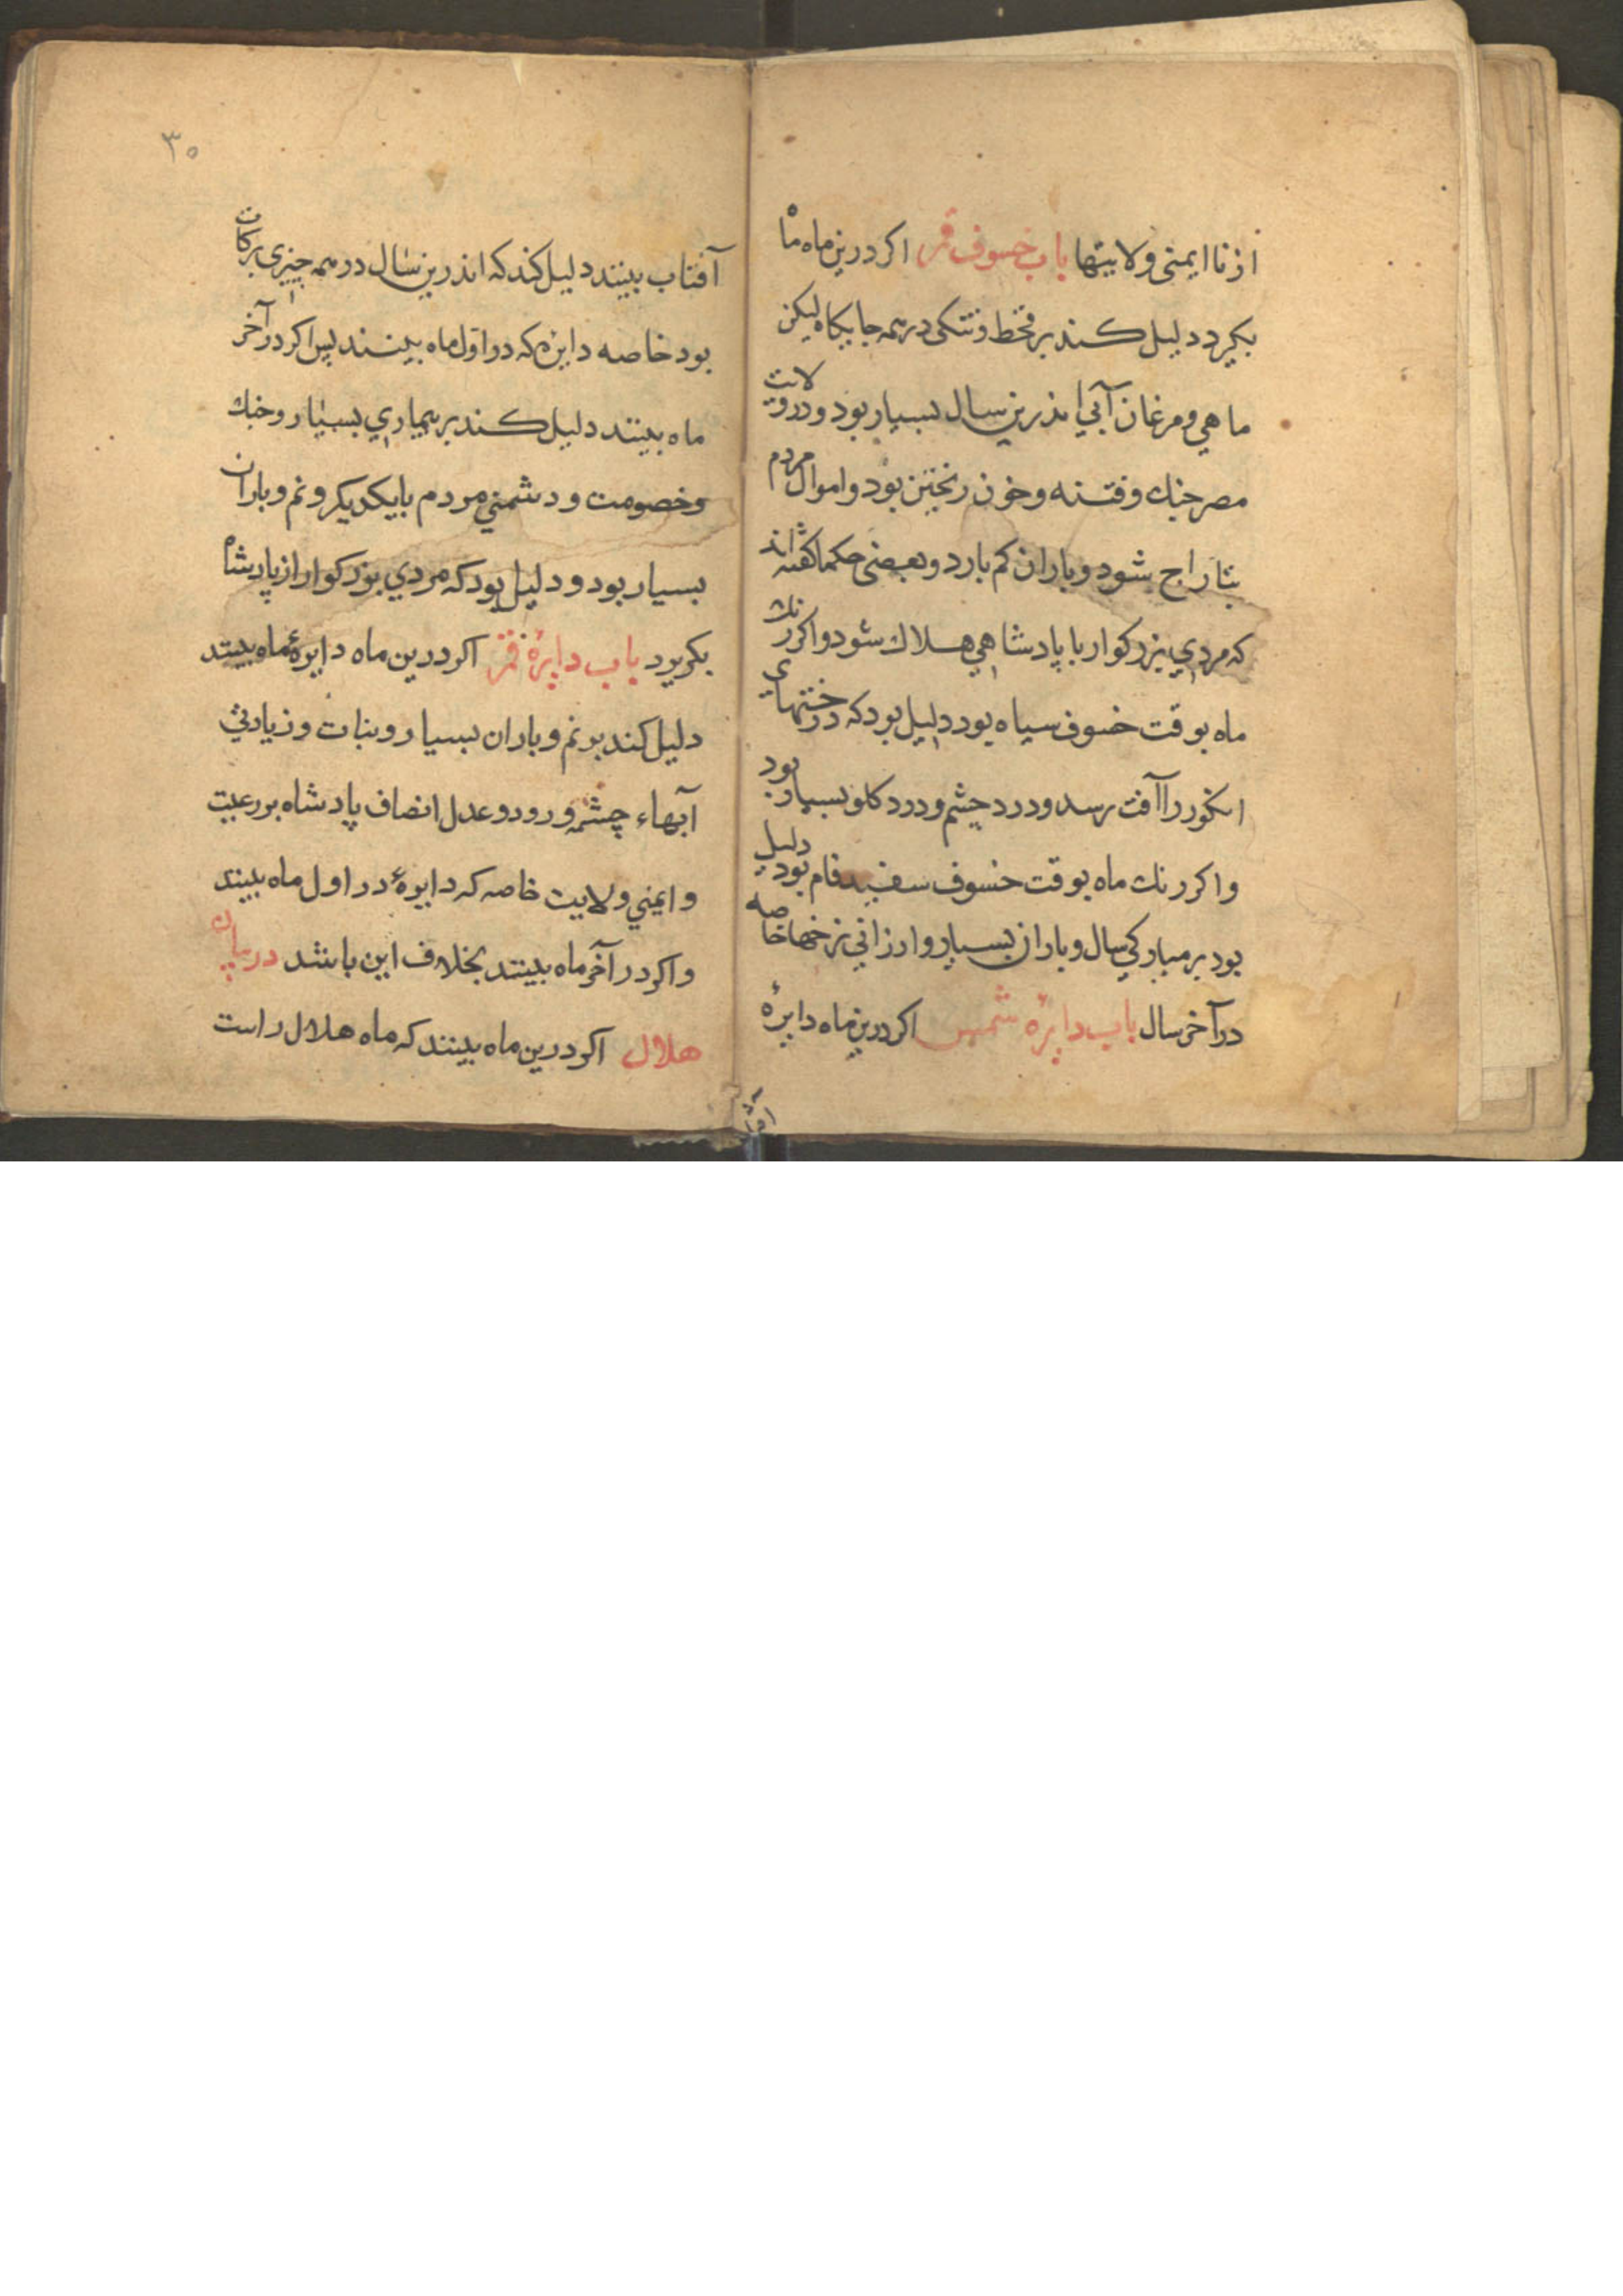 از نا ایمنی ولایتها باب خسوف قمر اکر درین ماه ماه
بکیرد دلیل کند بر قحط و تنکی در همه جایکاه لیکن
ماهي و مرغان آبي اندرین سال بسیار بود و در ولایت
مصر جنك و فتنه و خون ریختن بود و اموال مردم
بتاراج شود و باران کم بارد و بعضی حکما کفته اند
که مردي بزرکوار با پادشاهي هلاك شود و اکر رنك
ماه بوقت خسوف سیاه بود دلیل بود که درختهای
انکور را آفت رسد و درد چشم و درد کلو بسیار بود
و اکر رنك ماه بوقت خسوف سفید فام بود دلیل
بود بر مبارکي سال و باران بسیار و ارزاني نرخها خاصه
در آخر سال باب دایرۀ شمس اکر درین ماه دایرۀ
۳۰
آفتاب بینند دلیل کند که اندرین سال در همه چیزی برکات
بود خاصه دایره که در اول ماه بینند پس اکر در آخر
ماه بینند دلیل کند بر بیماري بسیار و جنك
و خصومت و دشمني مردم با یکدیکر و نم و باران
بسیار بود و دلیل بود که مردي بزرکوار از پادشاه
بکریزد باب دایرۀ قمر اکر درین ماه دایرۀ ماه بینند
دلیل کند بر نم و باران بسیار و نبات و زیادتي
آبهاء چشمه و رود و عدل انصاف پادشاه بر رعیت
و ایمني ولایت خاصه که دایرۀ در اول ماه بینند
و اکر در آخر ماه بینند بخلاف این باشد در بیان
هلال اکر درین ماه بینند که ماه هلال راست